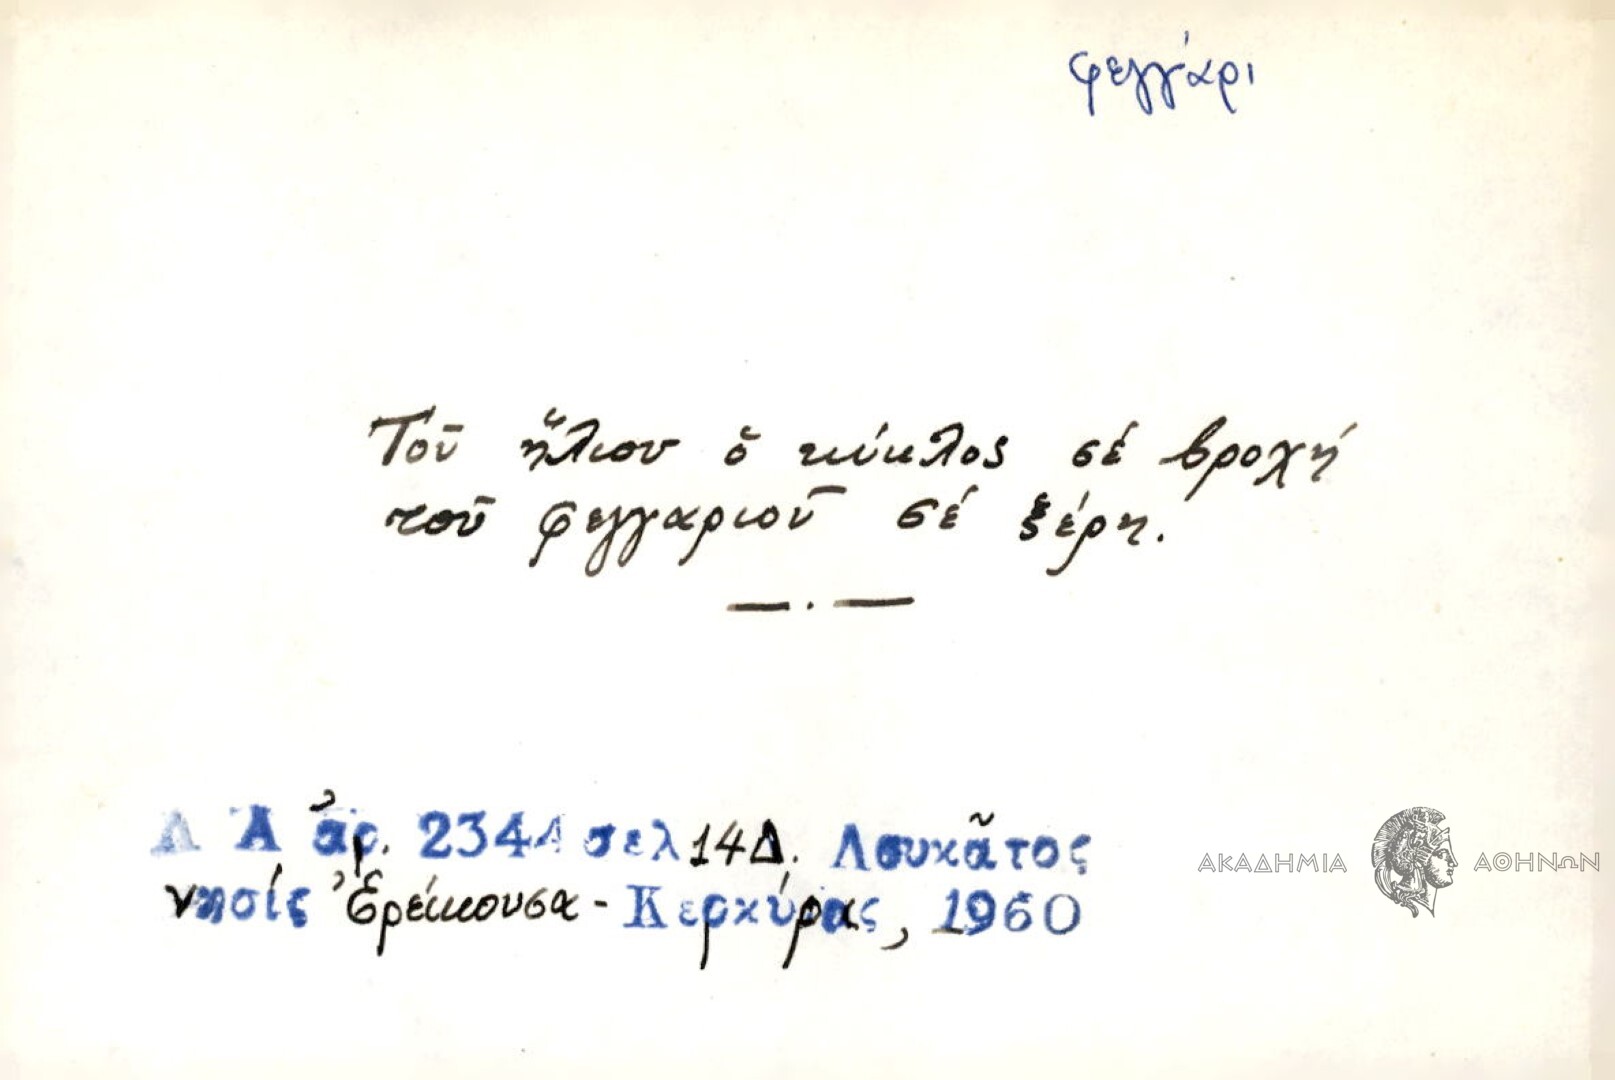 φεγγάρι
Τοῦ ἥλιου ὁ κύκλος σέ βροχή
τοῦ φεγγαριοῦ σέ ξέρη.
Λ Α ἀρ. 2344 σελ 14 Δ. Λουκᾶτος
νησίς Ἐρείκουσα - Κερκύρας, 1960
ΑΚΑΔΗΜΙΑ ΑΘΗΝΩΝ